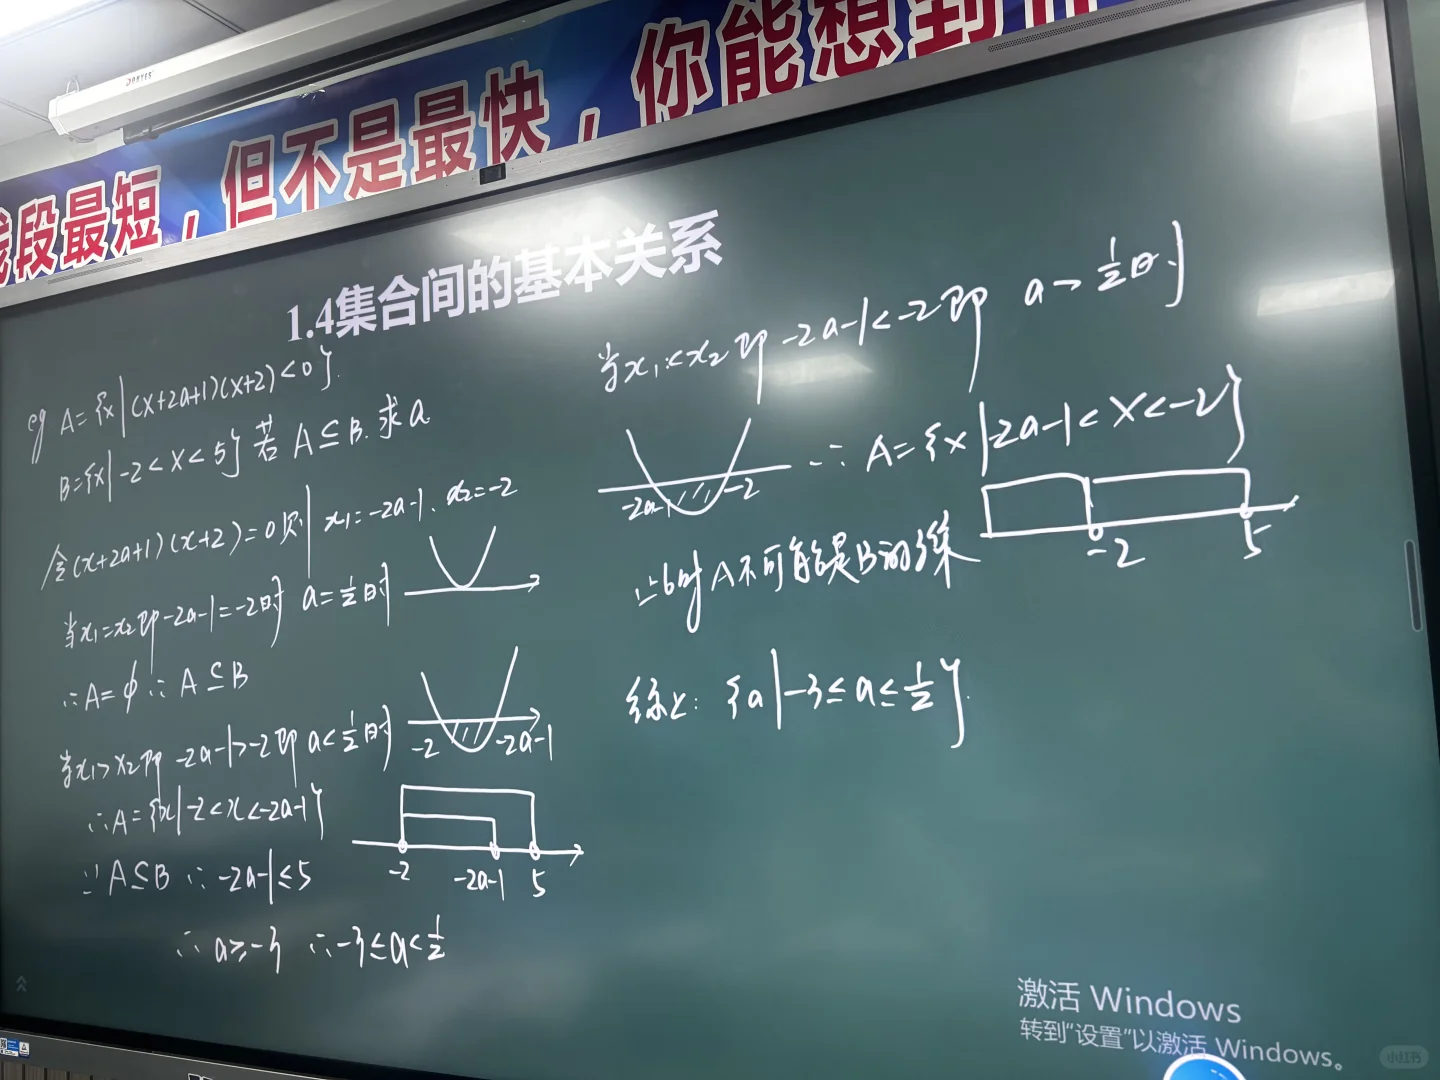 线段最短，但不是最快，你能想到
1.4集合间的基本关系
eg A={x|(x+2a+1)(x+2)<0}.
B={x|-2<x<5}若 A⊆B.求a
令(x+2a+1)(x+2)=0则 x₁=-2a-1、x₂=-2
当x₁=x₂即-2a-1=-2时 a=½时
∴A=ϕ ∴A⊆B
当x₁>x₂即 -2a-1>-2即 a<½时
-2 -2a-1
∴A={x|-2<x<-2a-1}
∵A⊆B ∴-2a-1≤5
-2 -2a-1 5
∴a≥-3 ∴-3≤a<½
当x₁<x₂即-2a-1<-2即 a>½时
-2a-1 -2
∴A={x|-2a-1<x<-2}
-2 5
此时A不可能是B的子集
综上：{a|-3≤a≤½}.
激活 Windows
转到"设置"以激活 Windows。
小红书